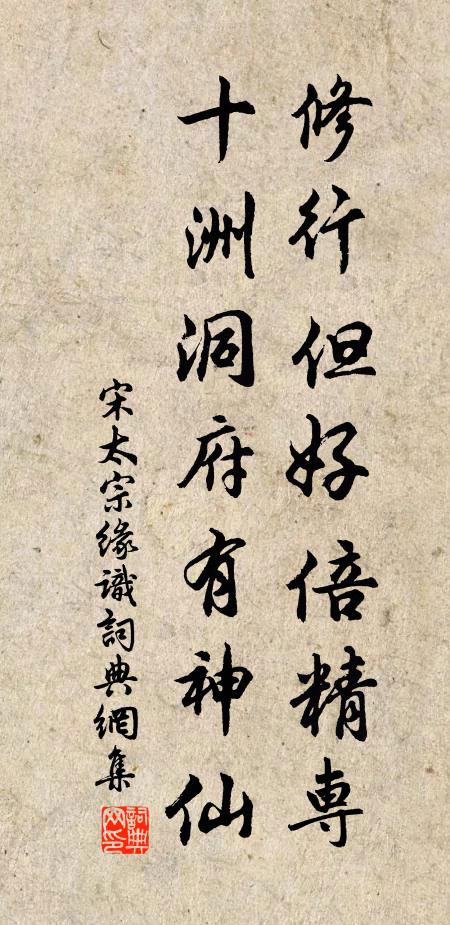 修行但好倍精專
十洲洞府有神仙
宋太宗緣識詞典網集
詞典網印